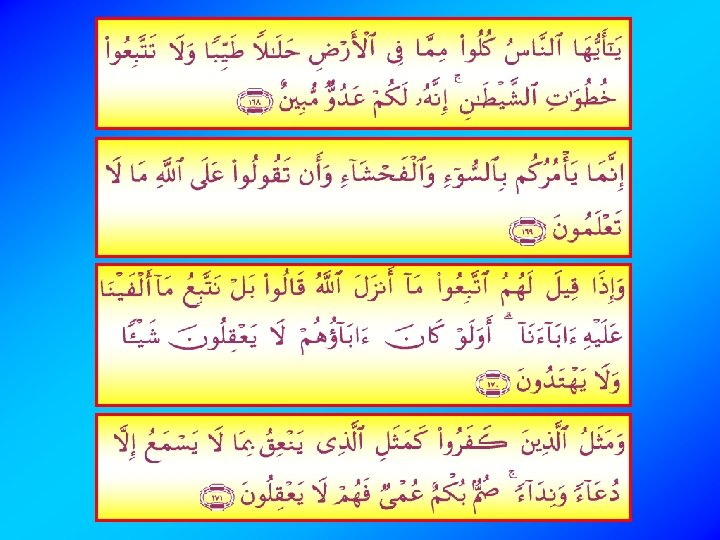 يَـٰٓأَيُّهَا ٱلنَّاسُ كُلُوا۟ مِمَّا فِى ٱلْأَرْضِ حَلَـٰلًا طَيِّبًا وَلَا تَتَّبِعُوا۟
خُطُوَٰتِ ٱلشَّيْطَـٰنِ ۚ إِنَّهُۥ لَكُمْ عَدُوٌّ مُّبِينٌ ١٦٨
إِنَّمَا يَأْمُرُكُم بِٱلسُّوٓءِ وَٱلْفَحْشَآءِ وَأَن تَقُولُوا۟ عَلَى ٱللَّهِ مَا لَا
تَعْلَمُونَ ١٦٩
وَإِذَا قِيلَ لَهُمُ ٱتَّبِعُوا۟ مَآ أَنزَلَ ٱللَّهُ قَالُوا۟ بَلْ نَتَّبِعُ مَآ أَلْفَيْنَا
عَلَيْهِ ءَابَآءَنَآ ۗ أَوَلَوْ كَانَ ءَابَآؤُهُمْ لَا يَعْقِلُونَ شَيْـًٔا
وَلَا يَهْتَدُونَ ١٧٠
وَمَثَلُ ٱلَّذِينَ كَفَرُوا۟ كَمَثَلِ ٱلَّذِى يَنْعِقُ بِمَا لَا يَسْمَعُ إِلَّا
دُعَآءً وَنِدَآءً ۚ صُمٌّۢ بُكْمٌ عُمْىٌ فَهُمْ لَا يَعْقِلُونَ ١٧١